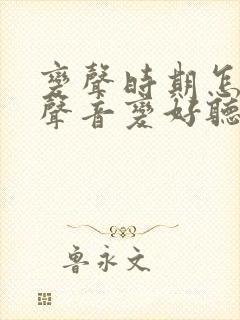 變聲時期怎
聲音變好聽
魯永文